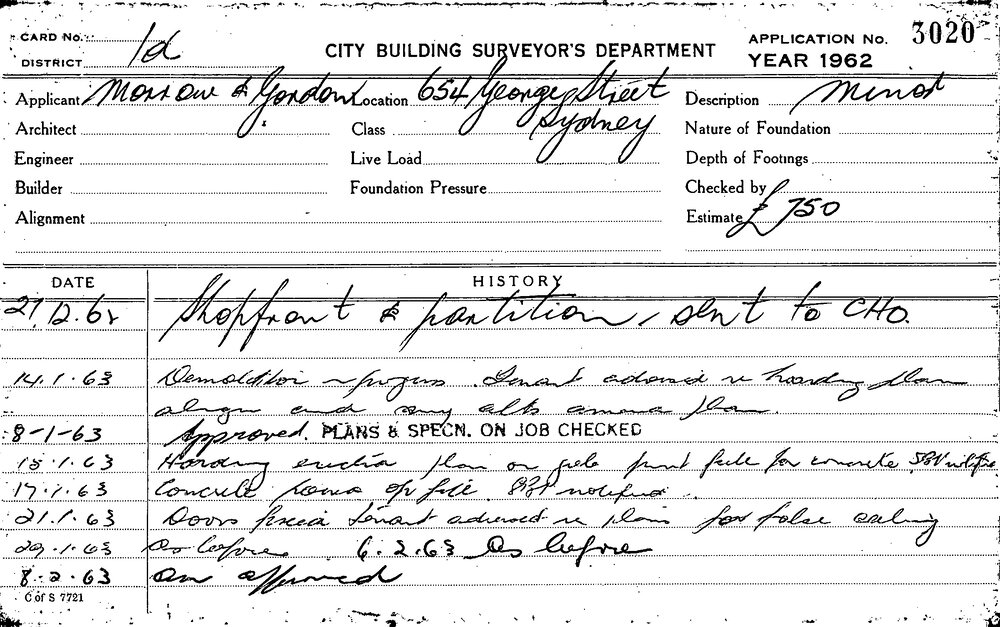 CARD No.
DISTRICT 1d
CITY BUILDING SURVEYOR'S DEPARTMENT
APPLICATION No. 3020
YEAR 1962
Applicant Morrow & Gordon Location 654 George Street Sydney Description Minor
Architect Class Nature of Foundation
Engineer Live Load Depth of Footings
Builder Foundation Pressure Checked by
Alignment Estimate £ 750
DATE HISTORY
27.12.62 Shopfront & partition, sent to CHO.
14.1.63 Demolition in progress. Tenant advised re hoarding plan
and any alts plan.
8-1-63 Approved. PLANS & SPECN. ON JOB CHECKED
15.1.63 Hoarding for concrete
17.1.63 Concrete notified
21.1.63 Doors Tenant advised re plan for false ceiling
29.1.63 As before 6.2.63 As before
8.2.63 As approved
C of S 7721